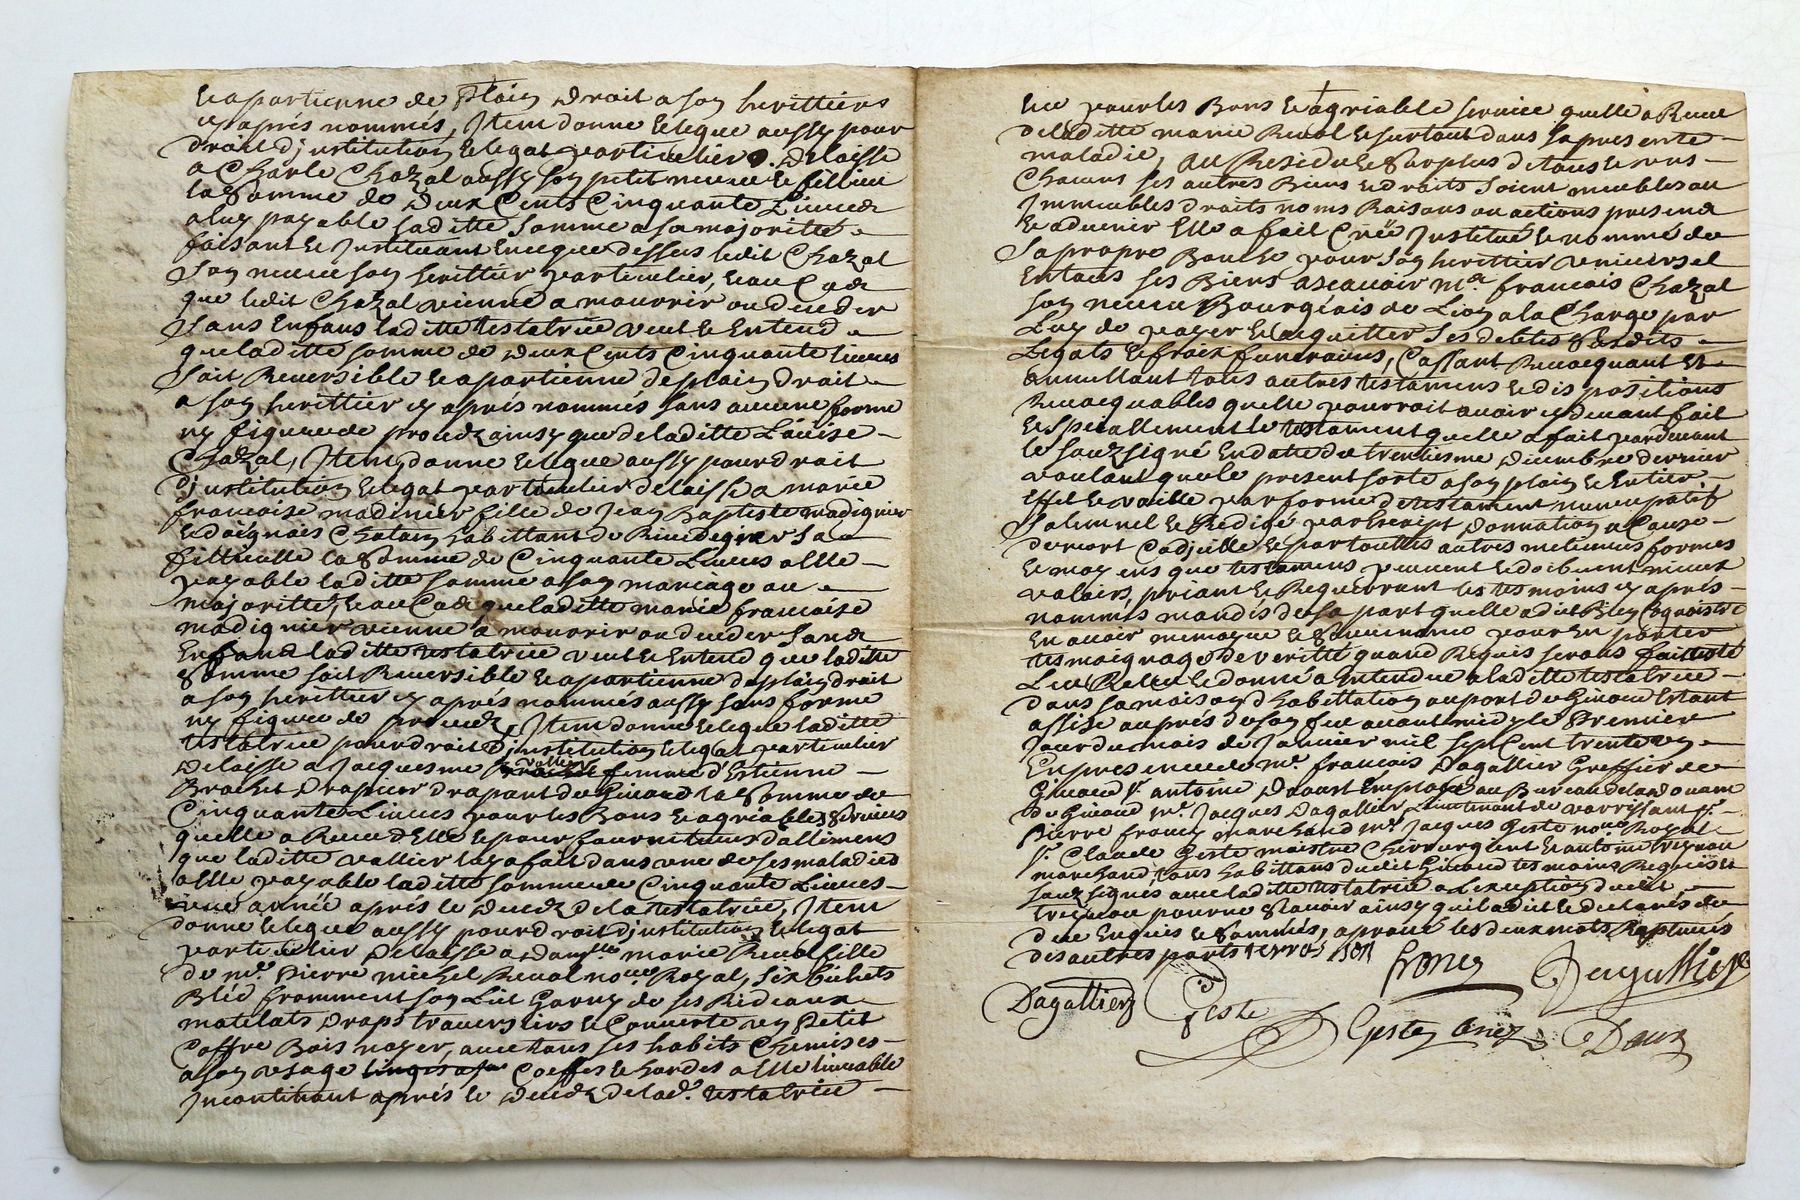 et apartienne de plain droit a son herittiers
cy aprés nommés, Item donne et legue aussy pour
droit d'jnstitution et legat particulier delaisse
a Charle Chazal aussy son petit neveu et fillieu
la somme de deux Cents Cinquante Livres
a luy payable laditte somme a sa majoritté
faisant et jnstituant en ce que dessus ledit Chazal
son neveu son herittier particulier, et au Cas
que ledit Chazal vienne a mourrir ou deceder
sans Enfans laditte testatrice veut et Entend
que laditte somme de deux Cents Cinquante livres
soit Reversible et apartienne de plain droit
a son herittier cy aprés nommés sans aucune forme
ny figure de procez ainsy que de laditte Loüise
Chazal, Item donne et legue aussy pour droit
d'jnstitution et legat particulier delaisse a marie
francoise madinier fille de Jean Baptiste madignier
et d' Chatain habittant de Rivedegier sa
fillieulle la somme de Cinquante Livres a elle
payable laditte somme a son mariage ou
majoritté, et au Cas que laditte marie francoise
madignier vienne a mourrir ou deceder sans
Enfans laditte testatrice veut et Entend que laditte
somme soit Reversible et apartienne de plain droit
a son herittier cy aprés nommés aussy sans forme
ny figure de procez, Item donne et legue laditte
testatrice pour droit d'jnstitution et legat particulier
delaisse a Jacquesme vallier femme d'Estienne
Brachet Drapier drapant de Givord la somme de
Cinquante Livres pour les Bons et agriables services
quelle a Receu d'Elle et pour fournitures d'allimens
que laditte vallier luy a fait dans une de ses maladies
a elle payable laditte somme de Cinquante Livres
une année aprés le decedz de la testatrice, Item
donne et legue aussy pour droit d'jnstitution et legat
particulier delaisse a damlle marie Reval fille
de me. Pierre michel Reval nore Royal, six bichets
Bléd fromment son Lict Garny de ses Rideaux
matelats draps traversiers et Couverte un Petit
Coffre Bois noyer, avec tous ses habits Chemises
a son usage Coeffes et hardes a elle livrable
jncontinant aprés le decedz de lade. testatrice
et ce pour les Bons et agriable service quelle a Receu
de laditte marie Reval et surtout dans sa presente
maladie, au Residu et surplus de tous et uns
Chacuns ses autres Biens et droits soient meubles ou
jmmeubles droits noms Raisons ou actions presens
et advenir Elle a fait Créé jnstitué et nommé de
sa propre Bouche pour son herittier universel
En tous ses Biens a scavoir me. francois Chazal
son neveu Bourgeois de Lion a la Charge par
Luy de payer et acquitter ses debtes
Legats et fraix funeraires, Cassant Revocquant et
annullant tous autres testamens et dispositions
Revocquables quelle pourroit avoir cy devant fait
Et specallement le testament quelle a fait par devant
le souzsigné En datte du trentiesme decembre dernier
voulant que le present sorte a son plain et Entier
Effet et vaille par forme de testament nuncupatif
solemnel et Redigé par Escript donnation a Cause
de mort Codicille et par touttes autres meilleures formes
et moyens que testamens peuvent et doibvent mieux
valoirs, priant et Requerrant les tesmoins cy aprés
nommés mandés de sa part quelle a dit Bien Cognoistre
En avoir memoyre et souvenance pour En porter
tesmoignage de veritté quand Requis serons faitte et
Leu Releu et donné a Entendre a laditte testatrice
dans sa maison d'habittation au port de Givord Estant
assise auprés de son feu avant midy le Premier
jour du mois de Janvier mil sept Cent trente un
En presence de me. francois Dagallier Greffier de
Givord sr. antoine Employé au Bureau de la doüane
de Givord me. Jacques Dagallier Lieutenant de
Pierre francy marchand me. Jacques Geste nore Royal
sr. Claude Geste maistre Chirurgient et antoine
marchand tous habittans dudit Givord tesmoins Requis et
souzsignés avec laditte testatrice a l'exception dudit
pour ne scavoir ainsy quil a dit et declarés de
ce Enquis et sommés, aprouvé les deux mots Raptures
des autres parts
Dagallier Geste francy Dagallier
Geste